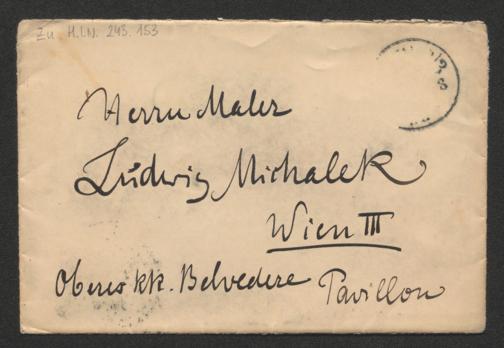 Zu H.I.N. 245.153
Herrn Maler
Ludwig Michalek
Wien III
Oberes kk. Belvedere Pavillon